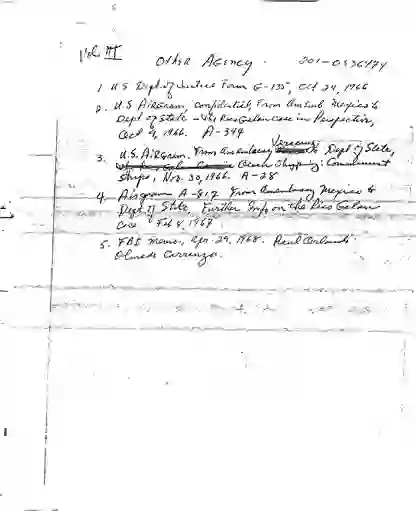 Vol III
Other Agency. 201-0336474
1. U S Dept. of Justice Form G-135, Oct 24, 1966
2. U.S. Airgram, Confidential, From Amemb Mexico to
Dept of State - The Rico Galan case in Perspective,
Oct 9, 1966. A-344
3. U.S. Airgram. From Amembassy Veracruz to Dept of State,
Ocean Shipping: Communist
Ships, Nov. 30, 1966. A-28
4. Airgram A-817 From Amembassy Mexico to
Dept. of State. Further Info on the Rico Galan
Case Feb 8, 1967
5. FBI memo, Apr. 29, 1968.
Olmedo Carranza.